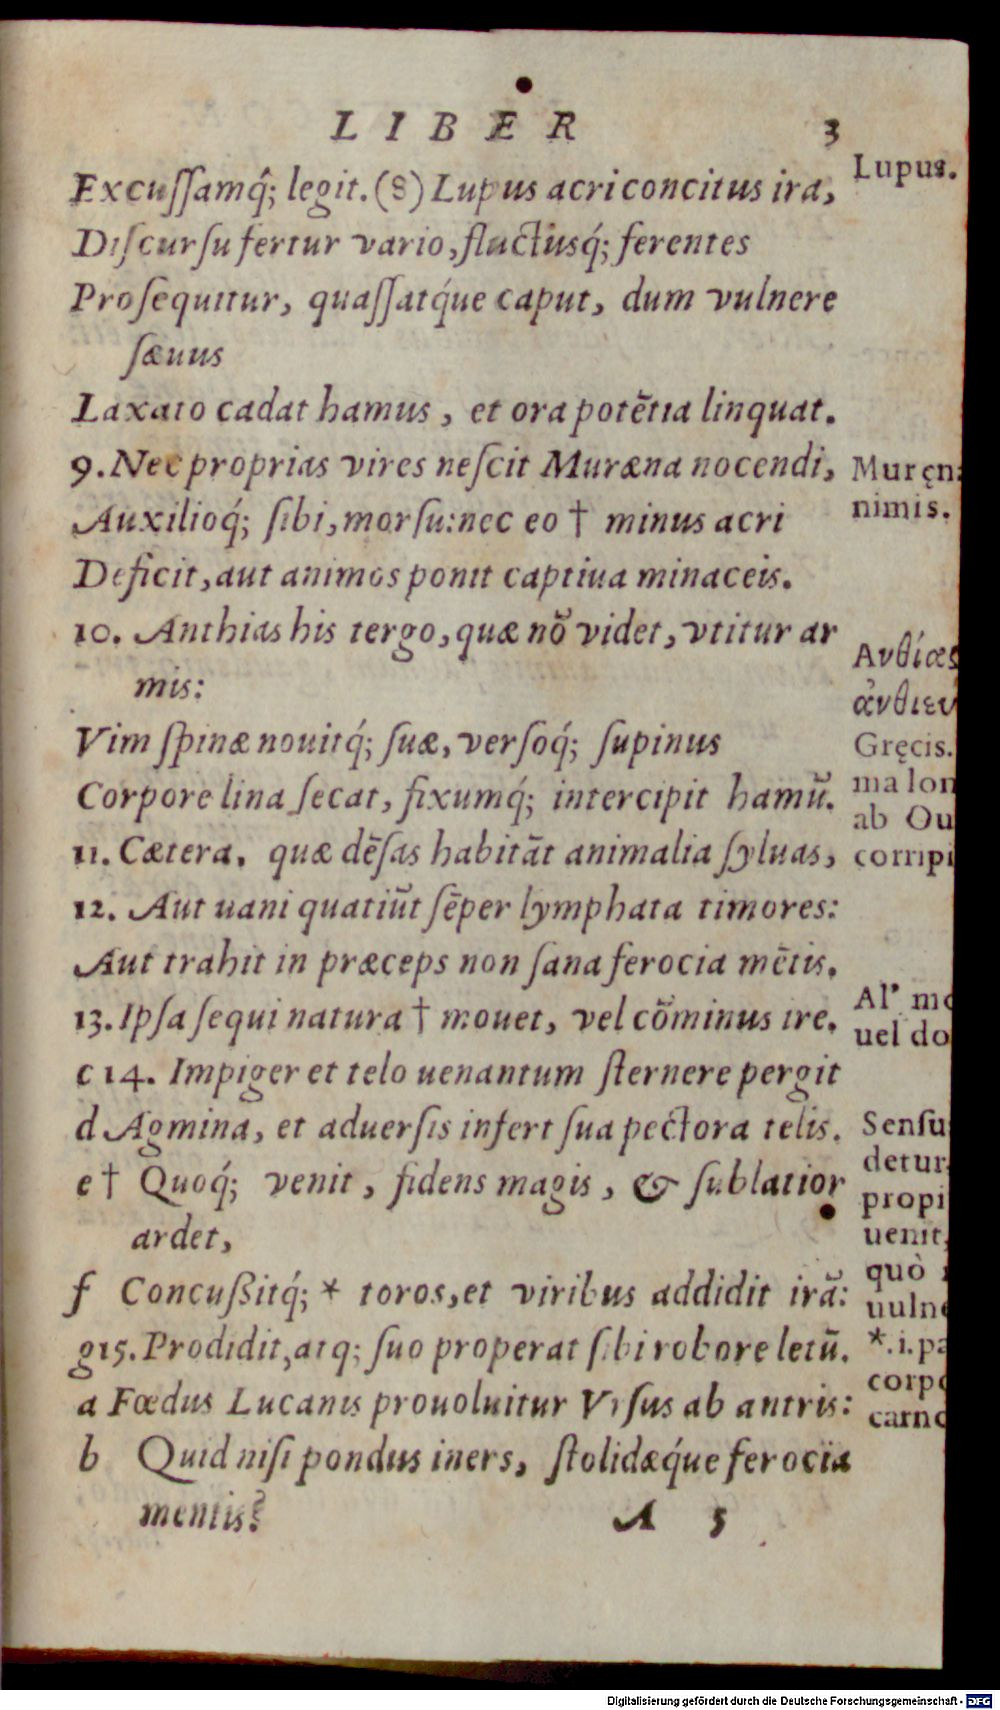 LIBER 3
Excuſſamq́; legit. (8) Lupus acri concitus ira,
Diſcurſu fertur vario, fluctusq́; ferentes
Proſequitur, quaſſatq́ue caput, dum vulnere
ſæuus
Laxato cadat hamus, et ora potẽtia linquat.
9. Nec proprias vires neſcit Muræna nocendi,
Auxilioq́; ſibi, morſu: nec eo † minus acri
Deficit, aut animos ponit captiua minaceis.
10. Anthias his tergo, quæ nõ videt, vtitur ar
mis:
Vim ſpinæ nouitq́; ſuæ, verſoq́; ſupinus
Corpore lina ſecat, fixumq́; intercipit hamũ.
11. Cætera, quæ dẽſas habitãt animalia ſyluas,
12. Aut uani quatiũt ſẽper lymphata timores:
Aut trahit in præceps non ſana ferocia mẽtis.
13. Ipſa ſequi natura † mouet, vel cõminus ire.
c 14. Impiger et telo uenantum ſternere pergit
d Agmina, et aduerſis infert ſua pectora telis.
e † Quoq́; venit, fidens magis, & ſublatior
ardet,
f Concuſsitq́; * toros, et viribus addidit irã:
g 15. Prodidit, atq; ſuo properat ſibi robore letũ.
a Fœdus Lucanis prouoluitur Vrſus ab antris:
b Quid niſi pondus iners, ſtolidæq́ue ferocia
mentis?
A 5
Lupus.
Muręn
nimis.
Ανθίας
ἀνθιευ
Gręcis.
ma lon
ab Ou
corripi
Al' mo
uel do
Senſu
detur
propi
uenit,
quò
uulne
*.i. pa
corpo
carno
Digitalisierung gefördert durch die Deutsche Forschungsgemeinschaft - DFG